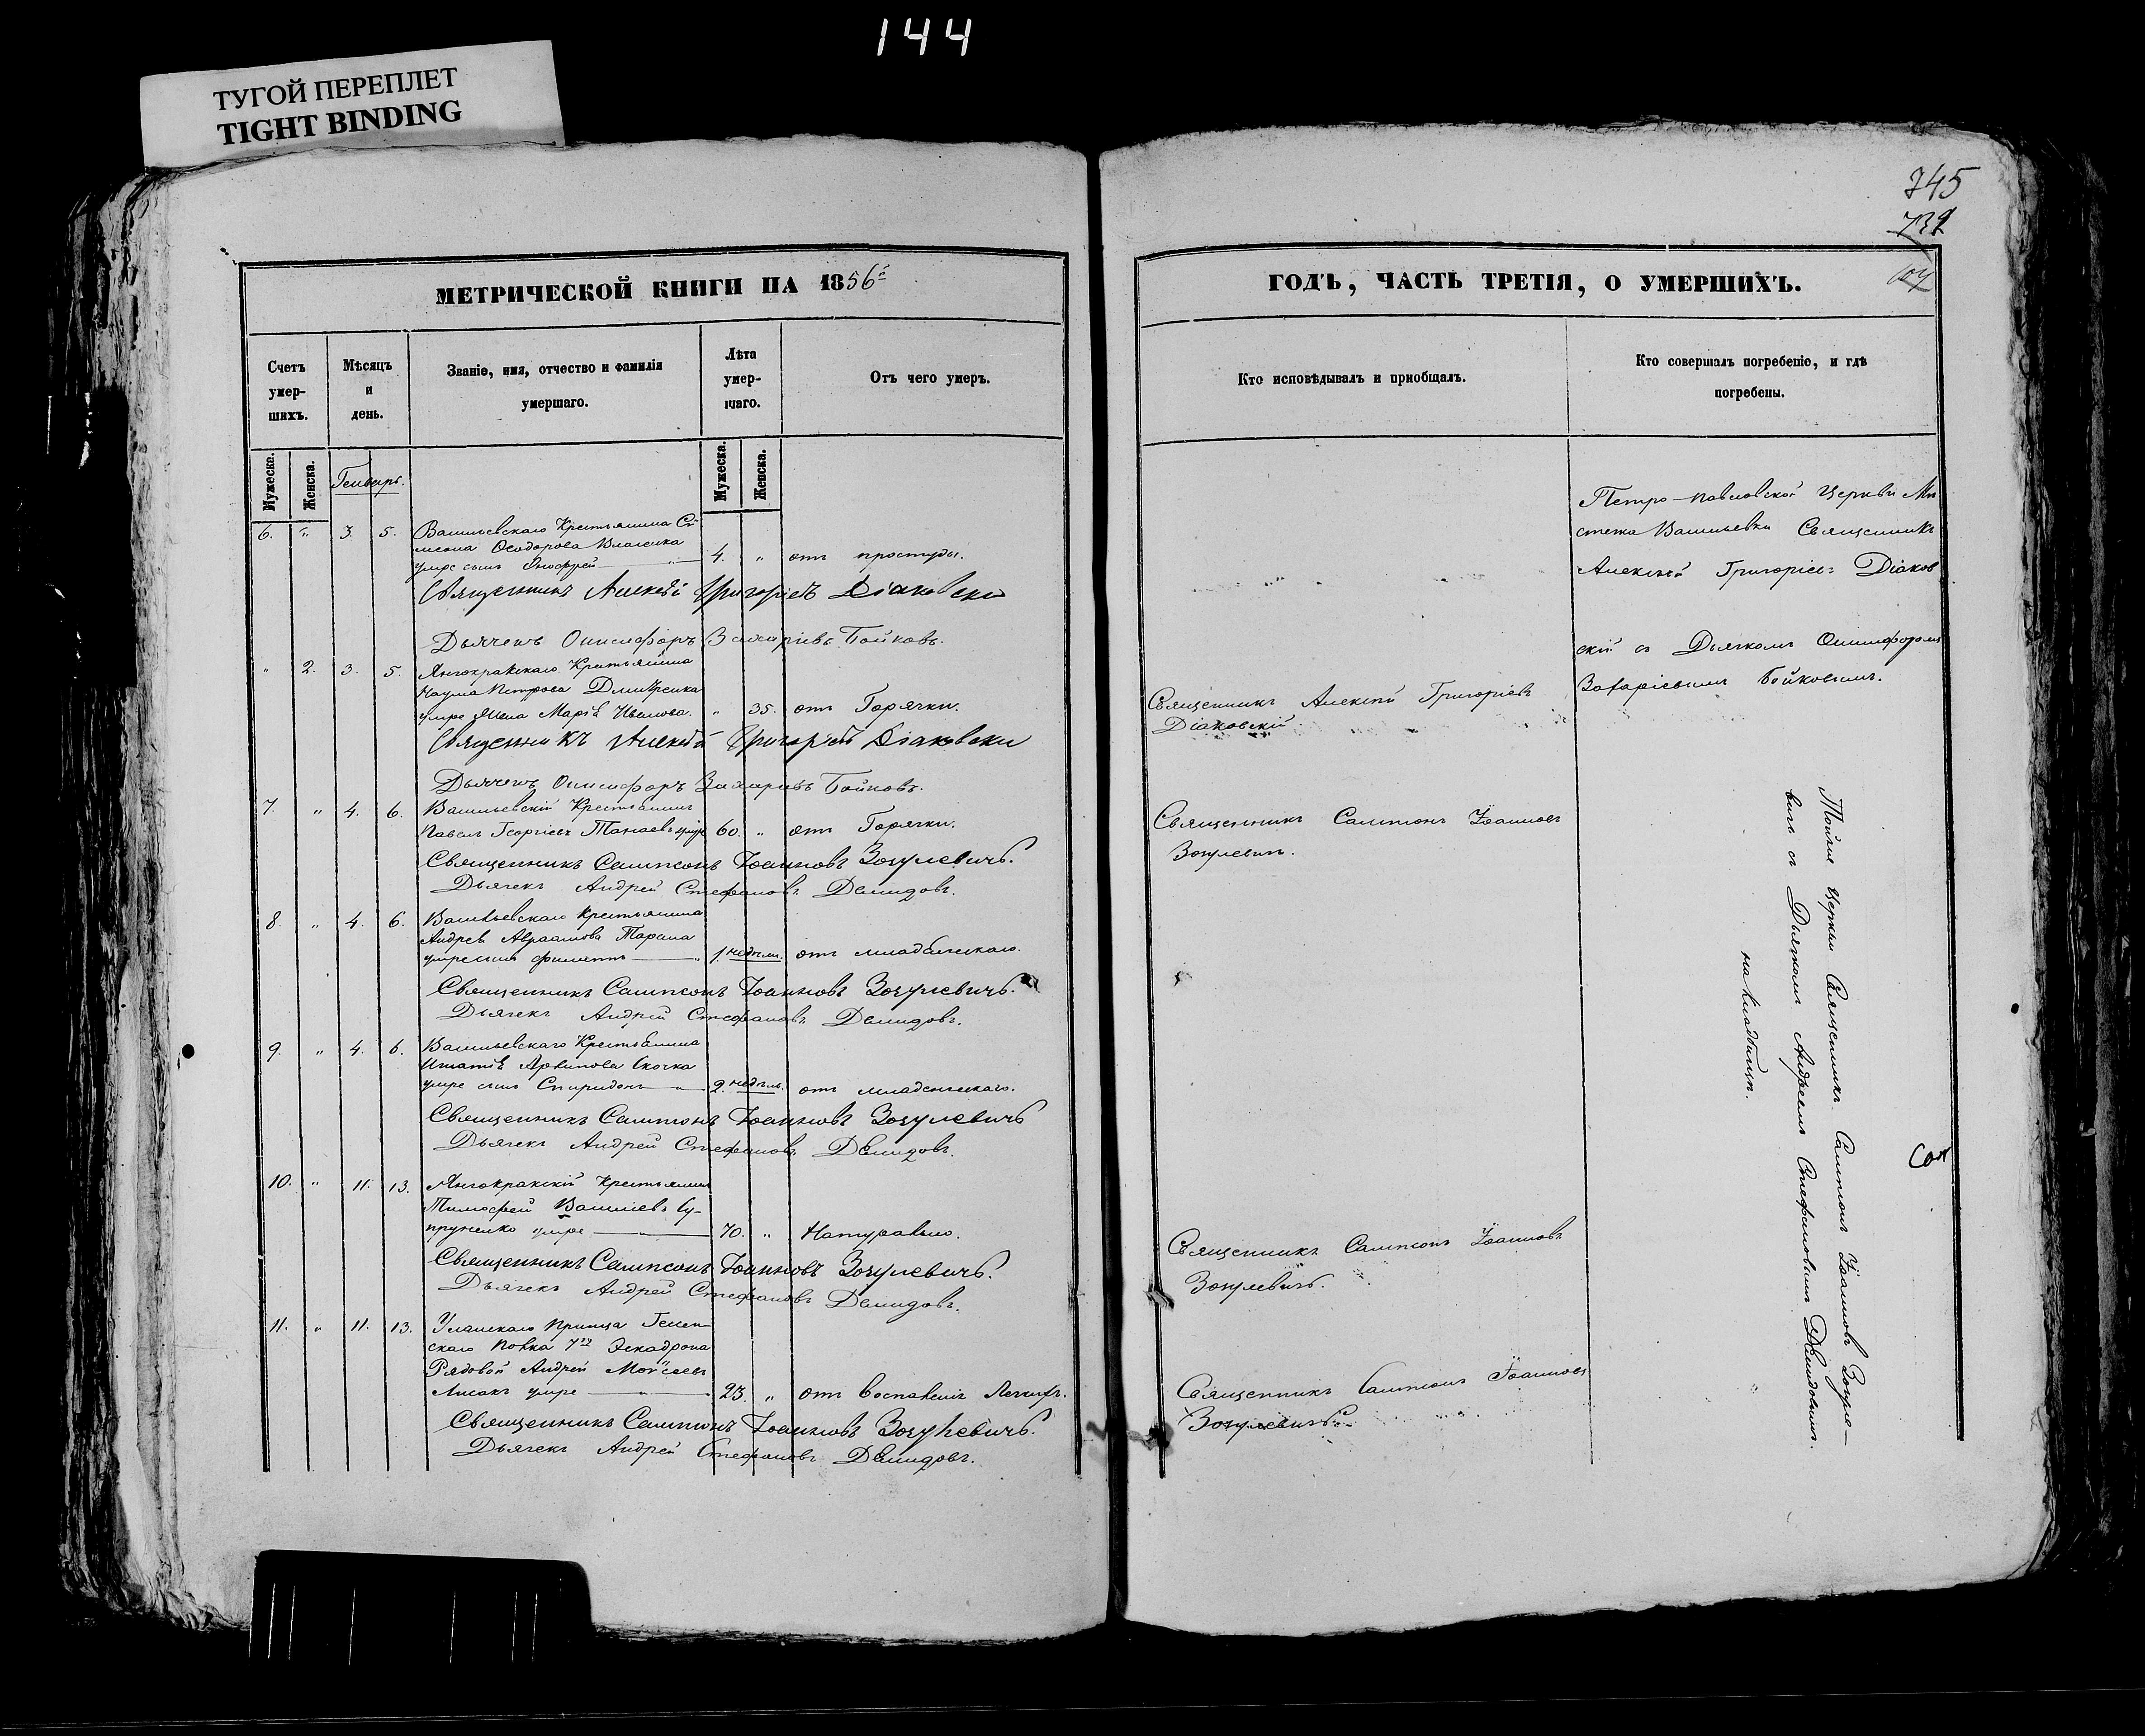 144
ТУГОЙ ПЕРЕПЛЕТ
TIGHT BINDING
745
739
МЕТРИЧЕСКОЙ КНИГИ НА 1856й
Счетъ умер-шихъ.
Мѣсяцъ и день.
Званіе, имя, отчество и фамилія умершаго.
Лѣта умер-шаго.
Отъ чего умеръ.
Мужеска.
Женска.
Генварь.
Мужеска.
Женска.
6. „ 3. 5. Васильевскаго Крестьянина Си-
меона Ѳеодорова Власенка
умре сынъ Онофрей 4. „ отъ простуды.
Священникъ Алексѣй Григоріевъ Діаковски
Дьячекъ Онисифоръ Захаріевъ Бойковъ.
„ 2. 3. 5. Янчокракскаго Крестьянина
Наума Петрова Дмитренка
умре жена Марія Иванова. „ 35. отъ Горячки.
Священникъ Алексѣй Григоріевъ Діаковски
Дьячекъ Онисифоръ Захаріевъ Бойковъ.
7. „ 4. 6. Васильевскій Крестьянинъ
Павелъ Георгіевъ умре 60. „ отъ Горячки.
Священникъ Сампсонъ Іоанновъ Зозулевичъ.
Дьячекъ Андрей Стефановъ Демидовъ.
8. „ 4. 6. Васильевскаго Крестьянина
Андрея Авраамова Тарана
умре сынъ Филиппъ 1. недѣли. отъ младенческаго.
Священникъ Сампсонъ Іоанновъ Зозулевичъ.
Дьячекъ Андрей Стефановъ Демидовъ.
9. „ 4. 6. Васильевскаго Крестьянина
Игнатія Архипова Скочка
умре сынъ Спиридонъ 2. недѣль. отъ младенческаго.
Священникъ Сампсонъ Іоанновъ Зозулевичъ
Дьячекъ Андрей Стефановъ Демидовъ.
10. „ 11. 13. Янчокракскій Крестьянинъ
Тимофей Василіевъ Су-
пруненко умре 70. „ Натурально.
Священникъ Сампсонъ Іоанновъ Зозулевичъ.
Дьячекъ Андрей Стефановъ Демидовъ.
11. „ 11. 13. Уланскаго Принца Гесен-
скаго Полка 7го Эскадрона
Рядовой Андрей Моѵсеевъ
Лисакъ умре 23. „ отъ воспаленія Легкихъ.
Священникъ Сампсонъ Іоанновъ Зозулевичъ.
Дьячекъ Андрей Стефановъ Демидовъ.
ГОДЪ, ЧАСТЬ ТРЕТІЯ, О УМЕРШИХЪ.
Кто исповѣдывалъ и пріобщалъ.
Кто совершалъ погребеніе, и гдѣ погребены.
Священникъ Алексѣй Григоріевъ
Діаковскій
Священникъ Сампсонъ Іоанновъ
Зозулевичъ.
Священникъ Сампсонъ Іоанновъ
Зозулевичъ.
Священникъ Сампсонъ Іоанновъ
Зозулевичъ.
Петро-павловской Церкви Мѣ
стечка Васильевки Священникъ
Алексѣй Григоріев= Діаков
скій съ Дьячкомъ Онисифоромъ
Захаріевымъ Бойковымъ.
Тойже Церкви Священникъ Сампсонъ Іоанновъ Зозуле-
вичъ съ Дьячкомъ Андреемъ Стефановымъ Демидовымъ.
на кладбищѣ.